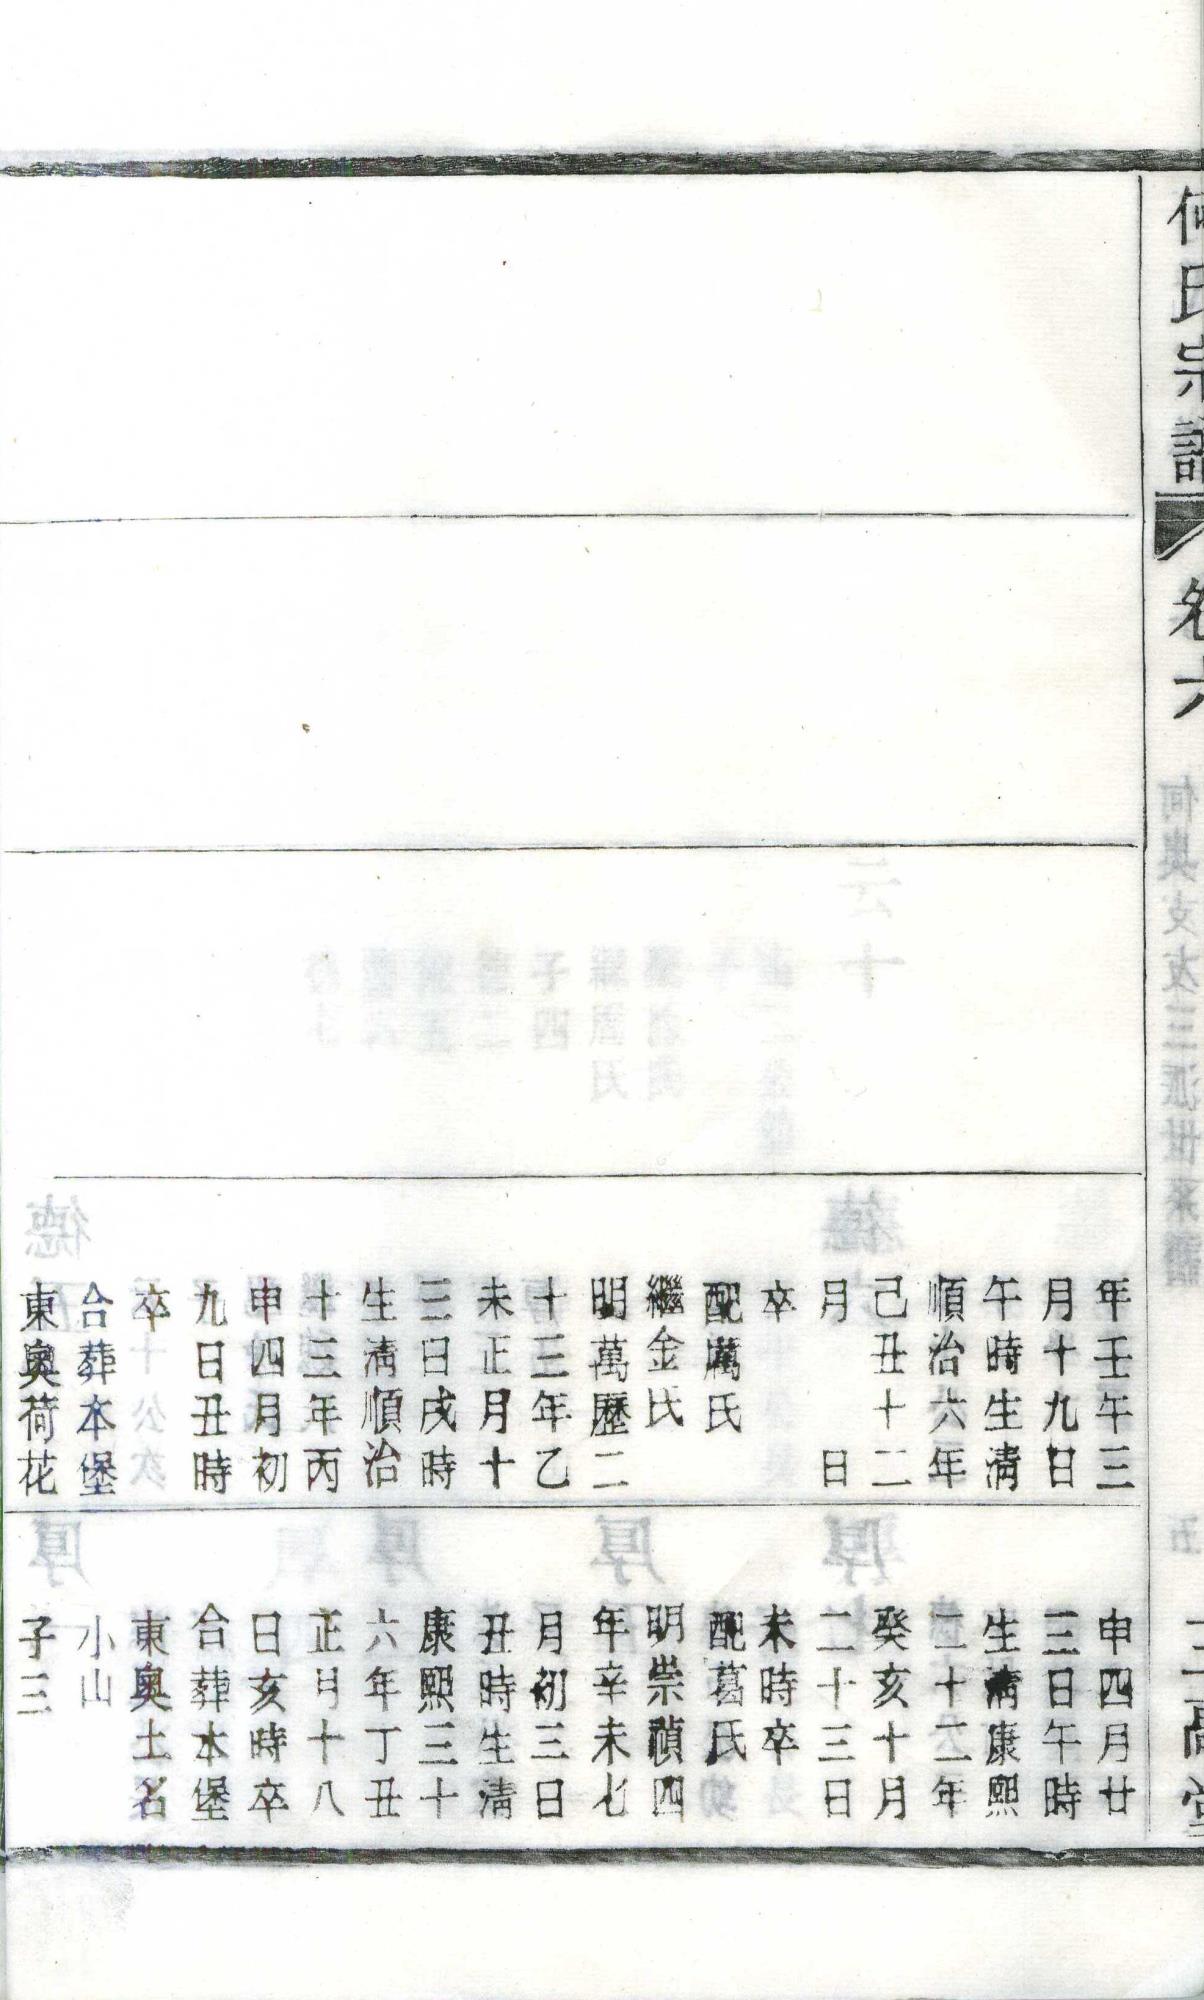 何氏宗譜
卷六
年壬午三
月十九日
午時生清
順治六年
己丑十二
月　　日
卒
配厲氏
繼金氏
明萬歷二
十三年乙
未正月十
三日戌時
生清順治
十三年丙
申四月初
九日丑時
卒
合葬本堡
東奧荷花
申四月廿
三日午時
生清康熙
二十二年
癸亥十月
二十三日
未時卒
配葛氏
明崇禎四
年辛未七
月初三日
丑時生清
康熙三十
六年丁丑
正月十八
日亥時卒
合葬本堡
東奧土名
小山
子三